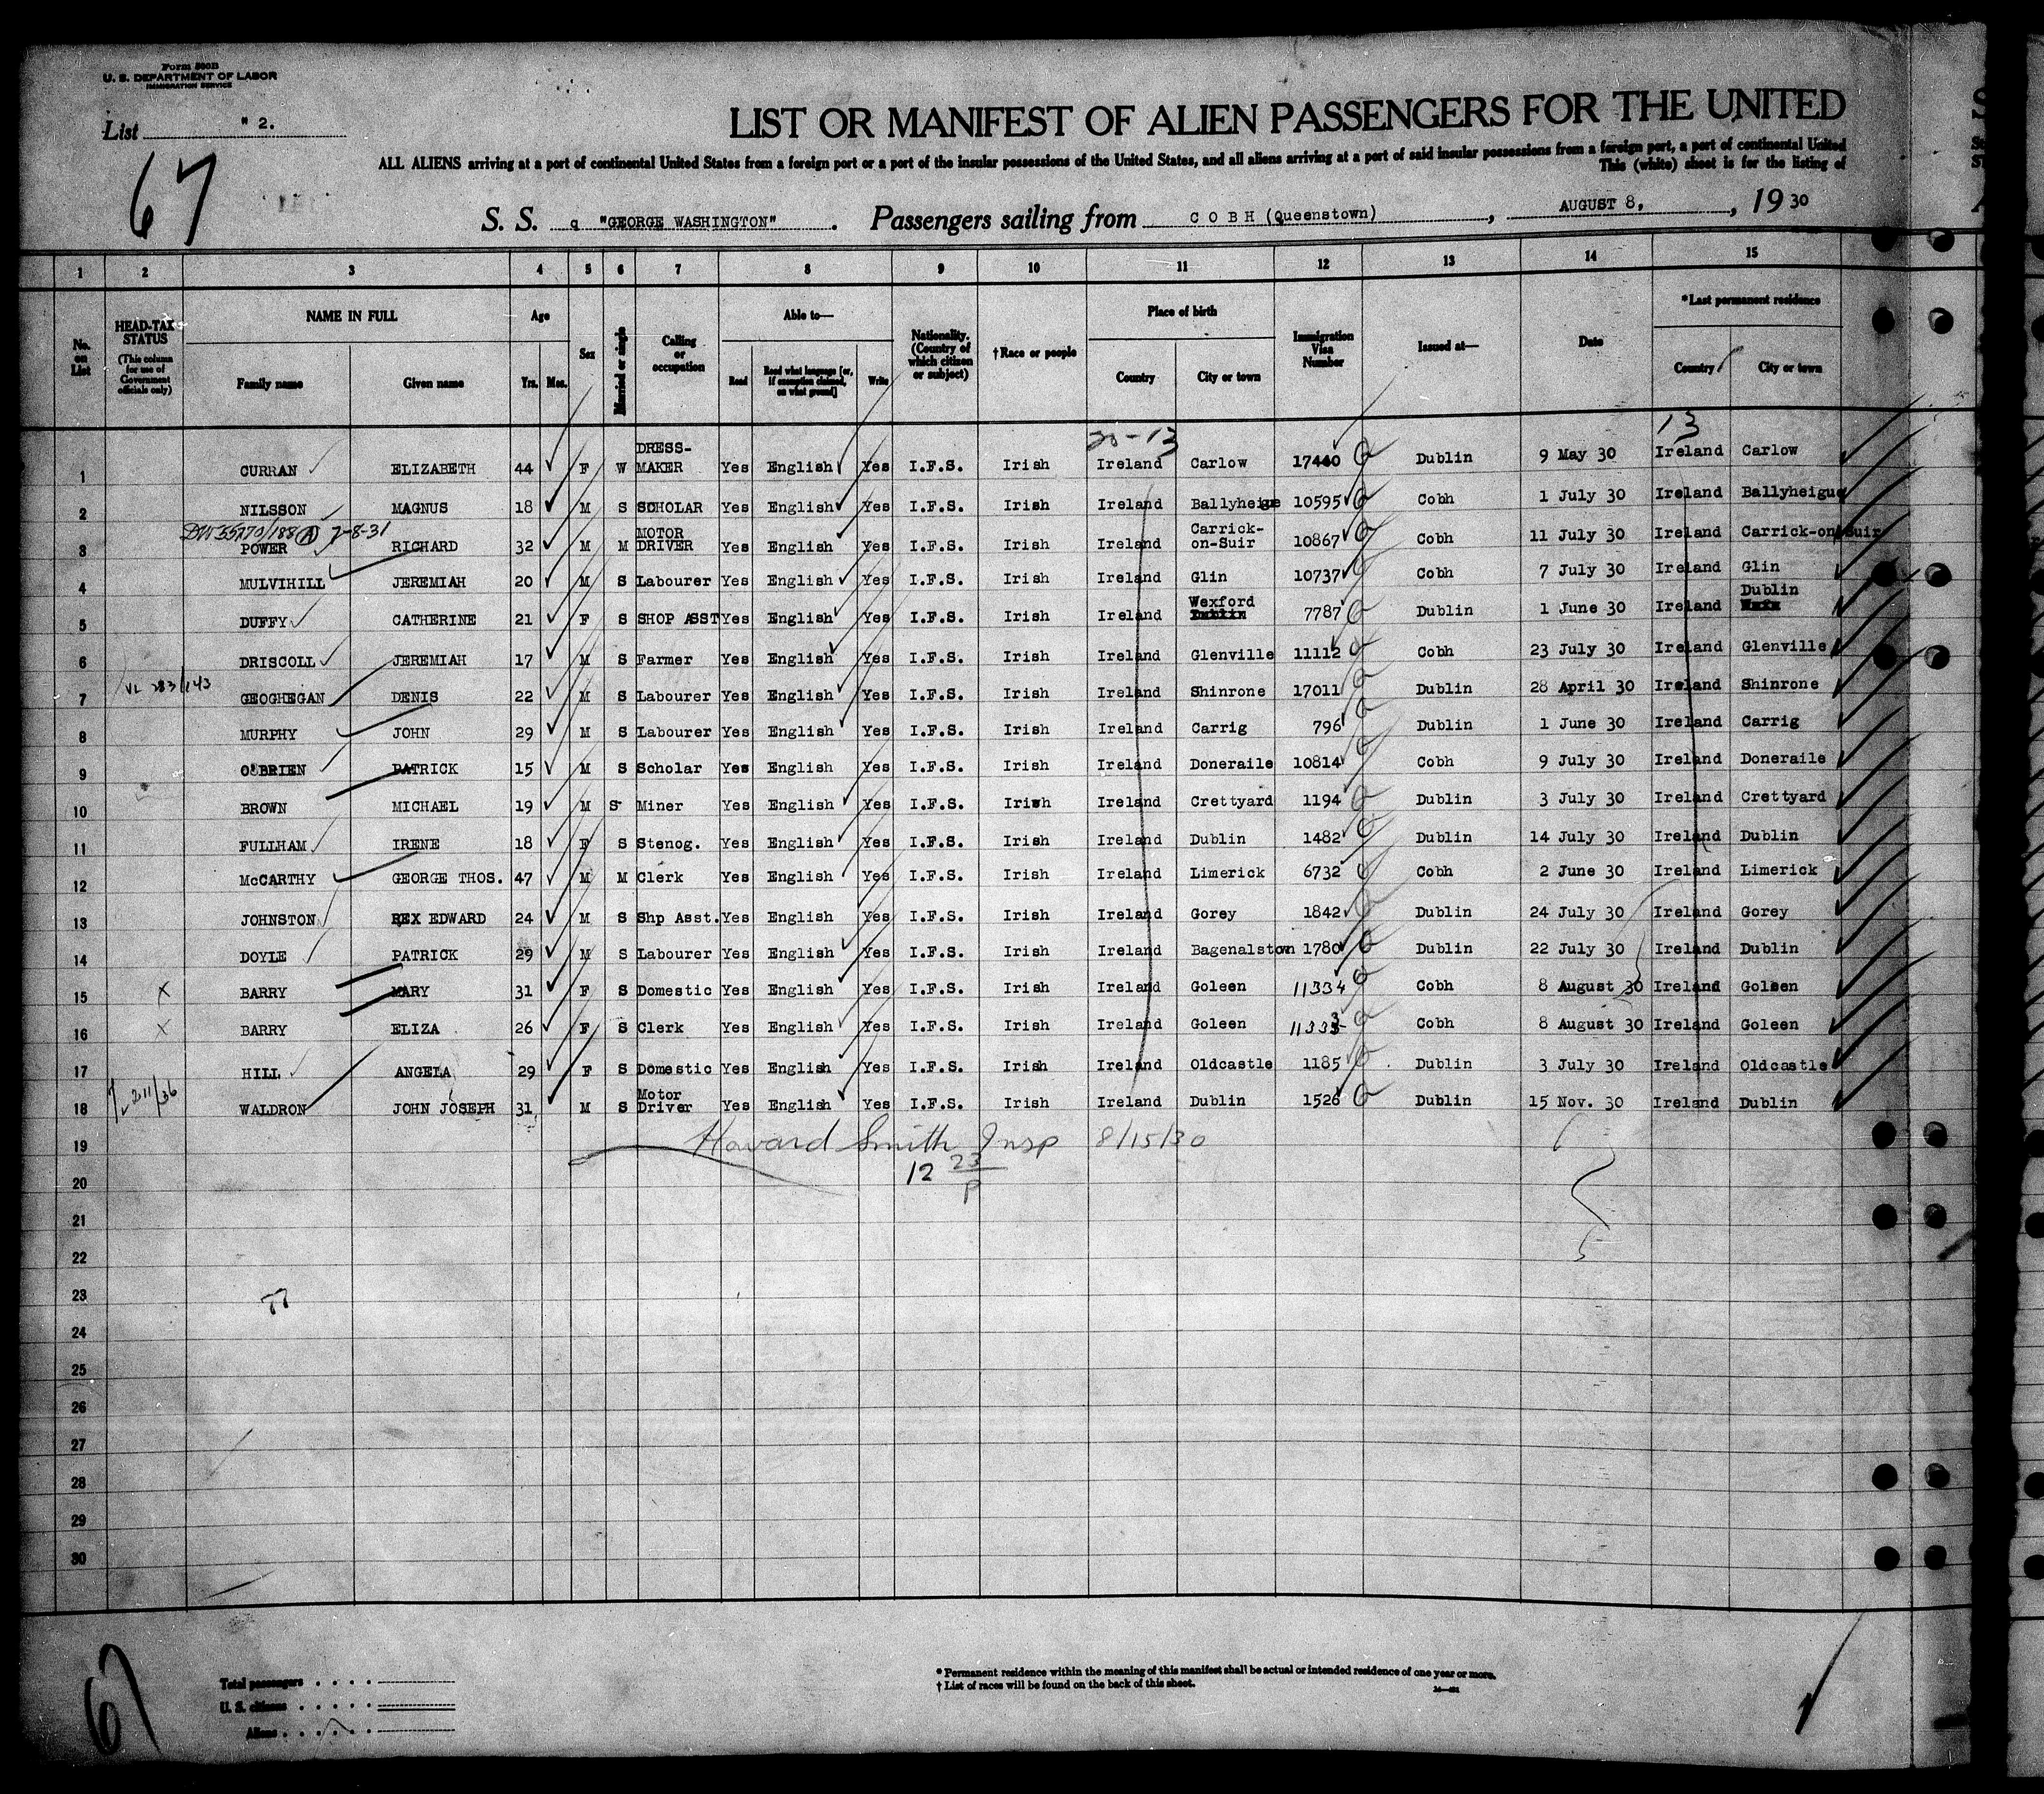 Form 500B
U. S. DEPARTMENT OF LABOR
IMMIGRATION SERVICE
List " 2.
67
LIST OR MANIFEST OF ALIEN PASSENGERS FOR THE UNITED
ALL ALIENS arriving at a port of continental United States from a foreign port or a port of the insular possessions of the United States, and all aliens arriving at a port of said insular possessions from a foreign port, a port of continental United
This (white) sheet is for the listing of
S. S. q "GEORGE WASHINGTON" . Passengers sailing from C O B H (Queenstown) , AUGUST 8, , 19 30
1 2 3 4 5 6 7 8 9 10 11 12 13 14 15
No. on List
HEAD-TAX STATUS (This column for use of Government officials only)
NAME IN FULL Family name Given name
Age Yrs. Mos.
Sex
Married or single
Calling or occupation
Able to— Read Read what language [or, if exemption claimed, on what ground] Write
Nationality. (Country of which citizen or subject)
† Race or people
Place of birth Country City or town
Immigration Visa Number
Issued at—
Date
*Last permanent residence Country City or town
20-13 13
1 CURRAN ELIZABETH 44 F W DRESS-MAKER Yes English Yes I.F.S. Irish Ireland Carlow 17440 Dublin 9 May 30 Ireland Carlow
2 NILSSON MAGNUS 18 M S SCHOLAR Yes English Yes I.F.S. Irish Ireland Ballyheigue 10595 Cobh 1 July 30 Ireland Ballyheigue
7-8-31
3 POWER RICHARD 32 M M MOTOR DRIVER Yes English Yes I.F.S. Irish Ireland Carrick-on-Suir 10867 Cobh 11 July 30 Ireland Carrick-on-Suir
4 MULVIHILL JEREMIAH 20 M S Labourer Yes English Yes I.F.S. Irish Ireland Glin 10737 Cobh 7 July 30 Ireland Glin
5 DUFFY CATHERINE 21 F S SHOP ASST Yes English Yes I.F.S. Irish Ireland Wexford Dublin 7787 Dublin 1 June 30 Ireland Dublin
6 DRISCOLL JEREMIAH 17 M S Farmer Yes English Yes I.F.S. Irish Ireland Glenville 11112 Cobh 23 July 30 Ireland Glenville
VL 283/143
7 GEOGHEGAN DENIS 22 M S Labourer Yes English Yes I.F.S. Irish Ireland Shinrone 17011 Dublin 28 April 30 Ireland Shinrone
8 MURPHY JOHN 29 M S Labourer Yes English Yes I.F.S. Irish Ireland Carrig 796 Dublin 1 June 30 Ireland Carrig
9 O'BRIEN PATRICK 15 M S Scholar Yes English Yes I.F.S. Irish Ireland Doneraile 10814 Cobh 9 July 30 Ireland Doneraile
10 BROWN MICHAEL 19 M S Miner Yes English Yes I.F.S. Irish Ireland Crettyard 1194 Dublin 3 July 30 Ireland Crettyard
11 FULLHAM IRENE 18 F S Stenog. Yes English Yes I.F.S. Irish Ireland Dublin 1482 Dublin 14 July 30 Ireland Dublin
12 McCARTHY GEORGE THOS. 47 M M Clerk Yes English Yes I.F.S. Irish Ireland Limerick 6732 Cobh 2 June 30 Ireland Limerick
13 JOHNSTON REX EDWARD 24 M S Shp Asst. Yes English Yes I.F.S. Irish Ireland Gorey 1842 Dublin 24 July 30 Ireland Gorey
14 DOYLE PATRICK 29 M S Labourer Yes English Yes I.F.S. Irish Ireland Bagenalstown 1780 Dublin 22 July 30 Ireland Dublin
15 X BARRY MARY 31 F S Domestic Yes English Yes I.F.S. Irish Ireland Goleen 11334 Cobh 8 August 30 Ireland Goleen
16 X BARRY ELIZA 26 F S Clerk Yes English Yes I.F.S. Irish Ireland Goleen 11333 Cobh 8 August 30 Ireland Goleen
17 HILL ANGELA 29 F S Domestic Yes English Yes I.F.S. Irish Ireland Oldcastle 1185 Dublin 3 July 30 Ireland Oldcastle
18 WALDRON JOHN JOSEPH 31 M S Motor Driver Yes English Yes I.F.S. Irish Ireland Dublin 1526 Dublin 15 Nov. 30 Ireland Dublin
19 Havard Smith Insp 8/15/30
20 12 23 P
21
22
23 77
24
25
26
27
28
29
30
67
Total passengers
U. S. citizens
Aliens
* Permanent residence within the meaning of this manifest shall be actual or intended residence of one year or more.
† List of races will be found on the back of this sheet.